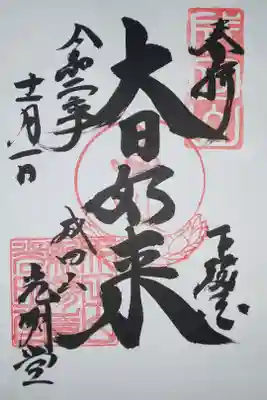 奉拝
下総国
大日如来
成田山
光明堂
令和二年
十一月一日